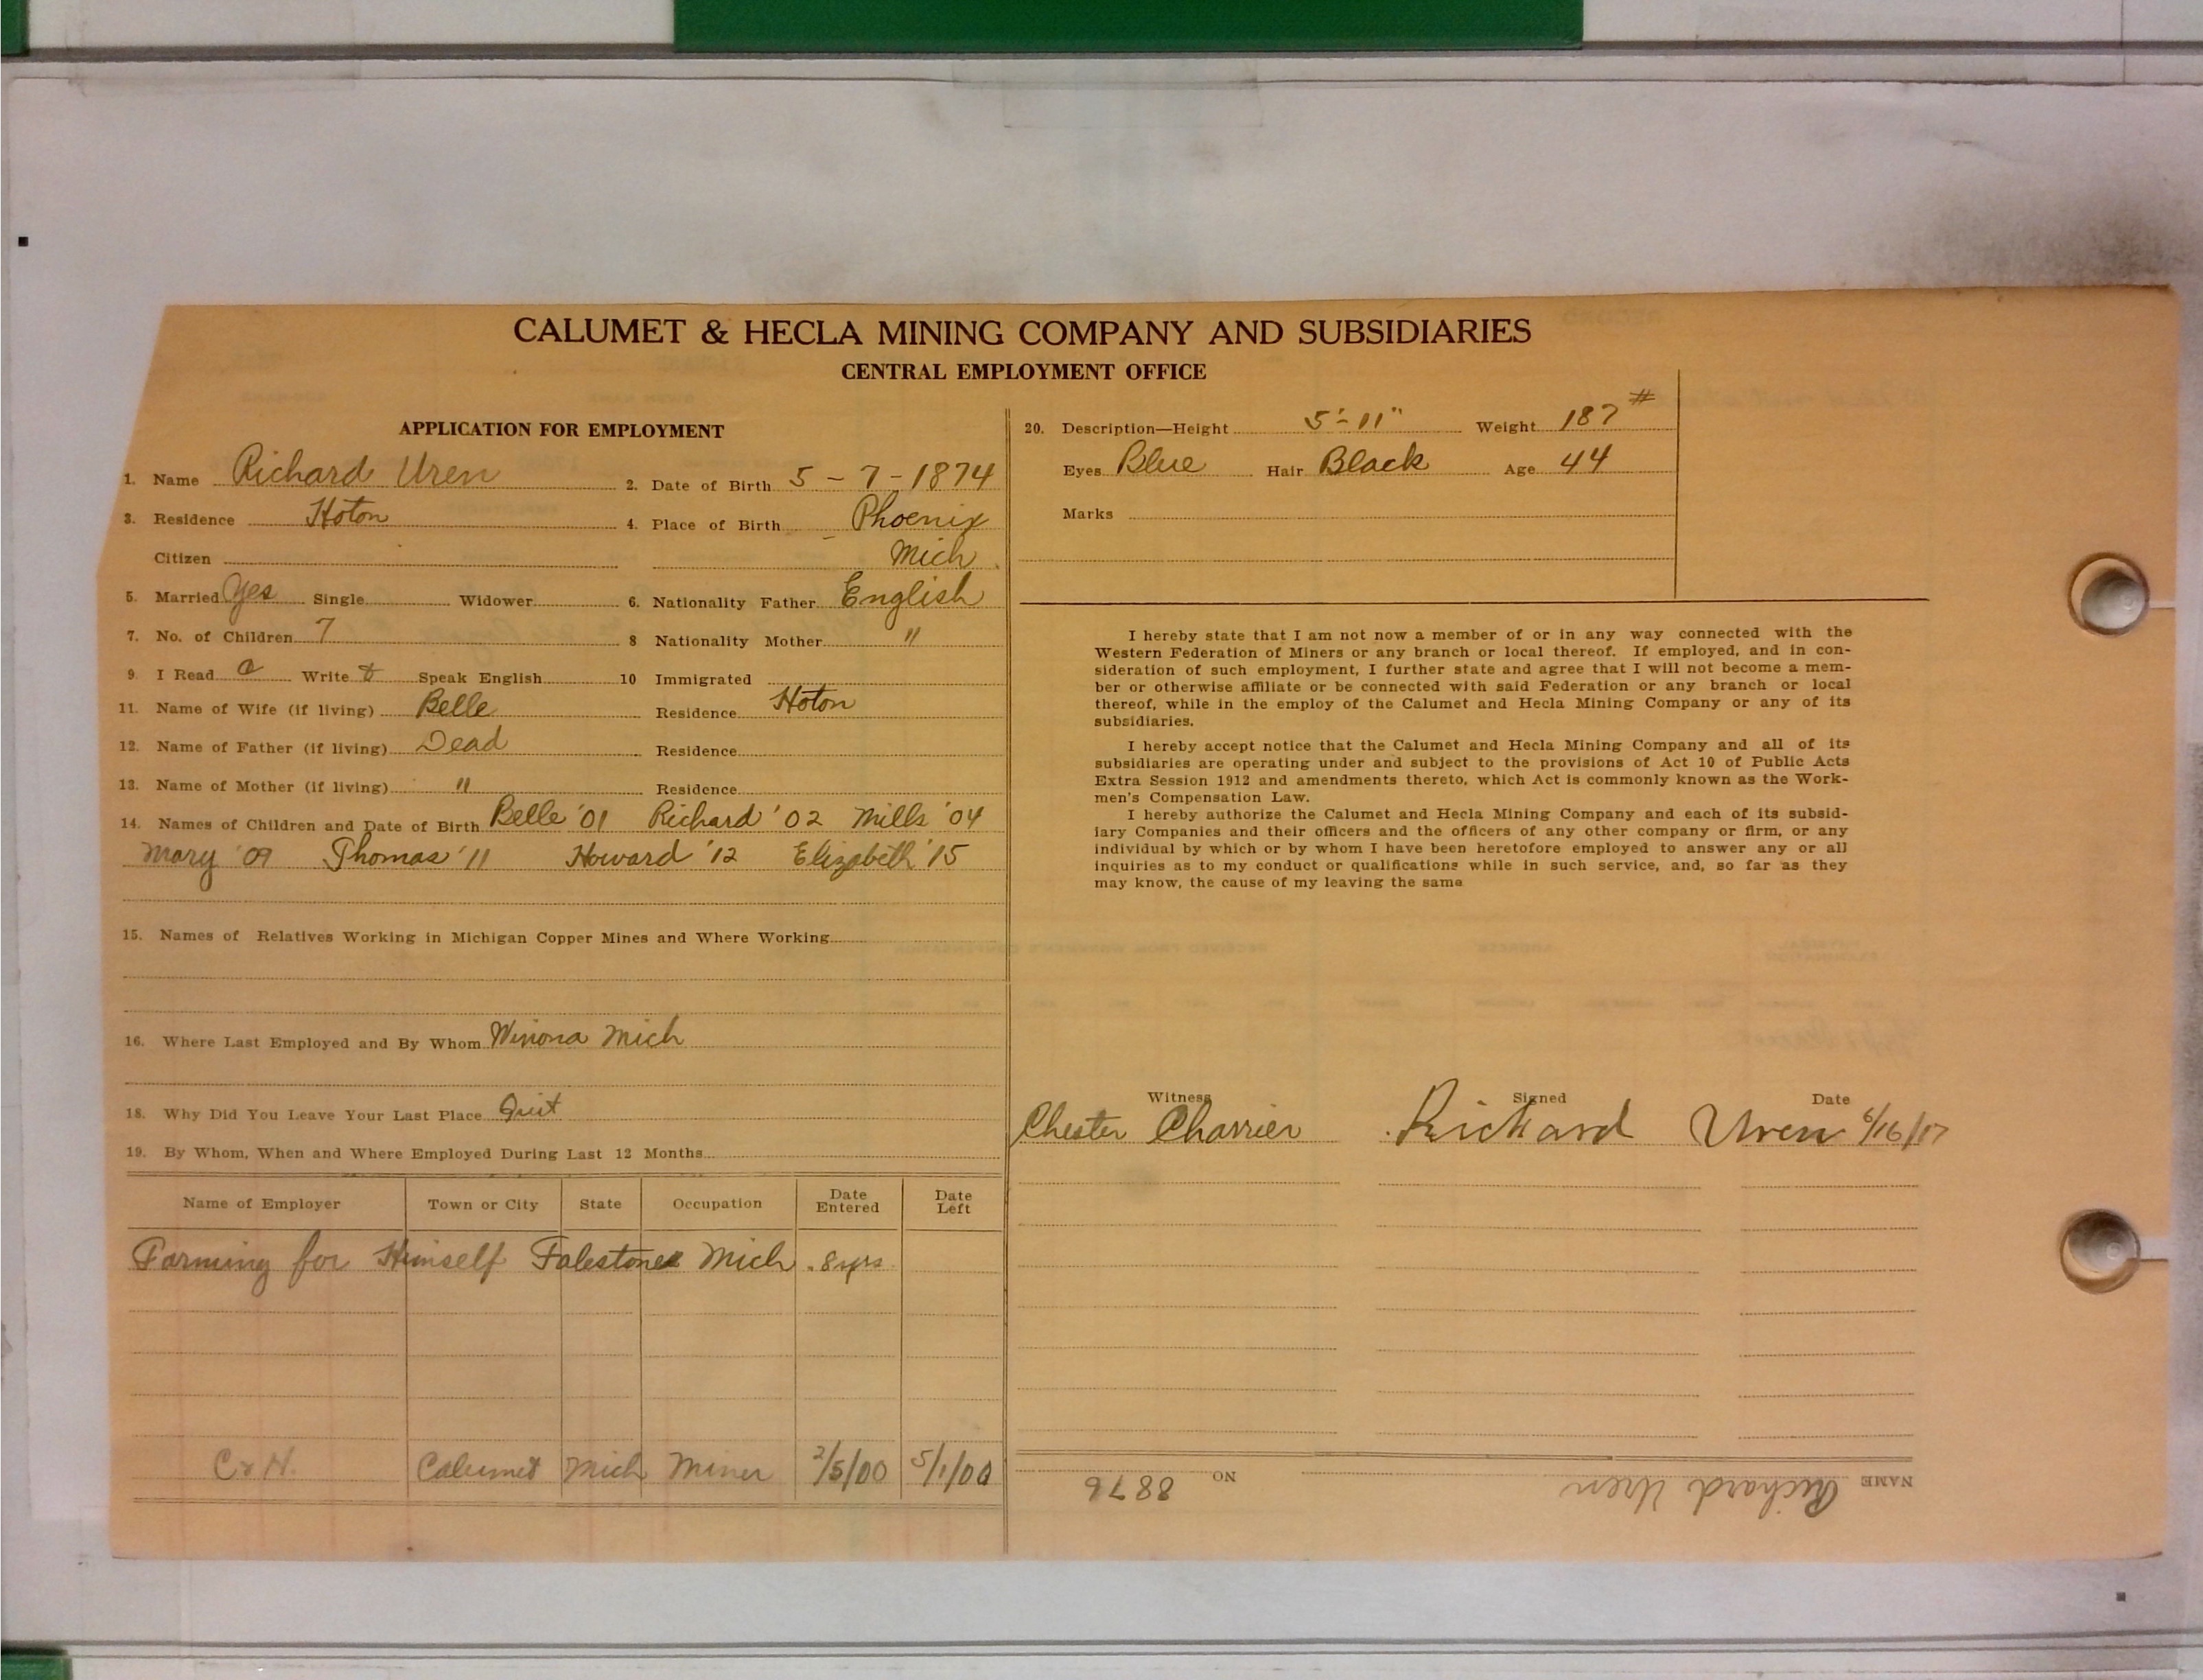 CALUMET & HECLA MINING COMPANY AND SUBSIDIARIES
CENTRAL EMPLOYMENT OFFICE
APPLICATION FOR EMPLOYMENT
1. Name Richard Uren 2. Date of Birth 5 - 7 - 1874
3. Residence Hoton 4. Place of Birth Phoenix
Citizen Mich
5. Married Yes Single Widower 6. Nationality Father English
7. No. of Children 7 8 Nationality Mother "
9. I Read Write Speak English 10 Immigrated
11. Name of Wife (if living) Belle Residence Hoton
12. Name of Father (if living) Dead Residence
13. Name of Mother (if living) " Residence
14. Names of Children and Date of Birth Belle '01 Richard '02 Mills '04
Mary '09 Thomas '11 Howard '12 Elizabeth '15
15. Names of Relatives Working in Michigan Copper Mines and Where Working
16. Where Last Employed and By Whom Winona Mich
18. Why Did You Leave Your Last Place Quit
19. By Whom, When and Where Employed During Last 12 Months
Name of Employer Town or City State Occupation Date Entered Date Left
Farming for Himself Mich 8 yrs
C & H. Calumet Mich Miner 2/5/00 5/1/00
20. Description—Height 5'-11" Weight 187 #
Eyes Blue Hair Black Age 44
Marks
I hereby state that I am not now a member of or in any way connected with the
Western Federation of Miners or any branch or local thereof. If employed, and in con-
sideration of such employment, I further state and agree that I will not become a mem-
ber or otherwise affiliate or be connected with said Federation or any branch or local
thereof, while in the employ of the Calumet and Hecla Mining Company or any of its
subsidiaries.
I hereby accept notice that the Calumet and Hecla Mining Company and all of its
subsidiaries are operating under and subject to the provisions of Act 10 of Public Acts
Extra Session 1912 and amendments thereto, which Act is commonly known as the Work-
men's Compensation Law.
I hereby authorize the Calumet and Hecla Mining Company and each of its subsid-
iary Companies and their officers and the officers of any other company or firm, or any
individual by which or by whom I have been heretofore employed to answer any or all
inquiries as to my conduct or qualifications while in such service, and, so far as they
may know, the cause of my leaving the same
Witness Signed Date
Chester Charrier Richard Uren 6/16/17
NAME Richard Uren NO 8876